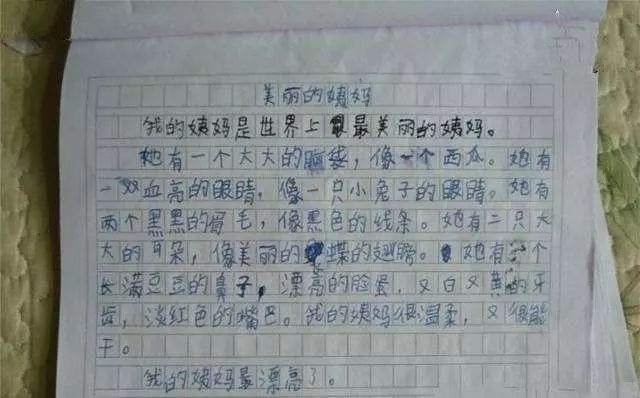 美丽的姨妈
我的姨妈是世界上最美丽的姨妈。
她有一个大大的脑袋，像一个西瓜。她有
一双血亮的眼睛，像一只小兔子的眼睛。她有
两个黑黑的眉毛，像黑色的线条。她有二只大
大的耳朵，像美丽的蝶的翅膀。她有一个
长满豆豆的鼻子，漂亮的脸蛋，又白又黄的牙
齿，淡红色的嘴巴。我的姨妈很温柔，又很能
干。
我的姨妈最漂亮了。